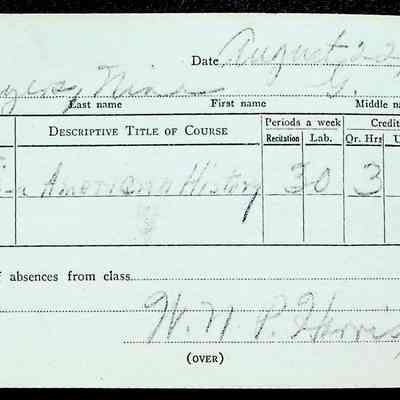 Date August 22,
Nina G.
Last name First name Middle n
Descriptive Title of Course Periods a week Credit
Recitation Lab. Qr. Hrs U
American History 30 3
f absences from class
W. N. P. Harris
(over)